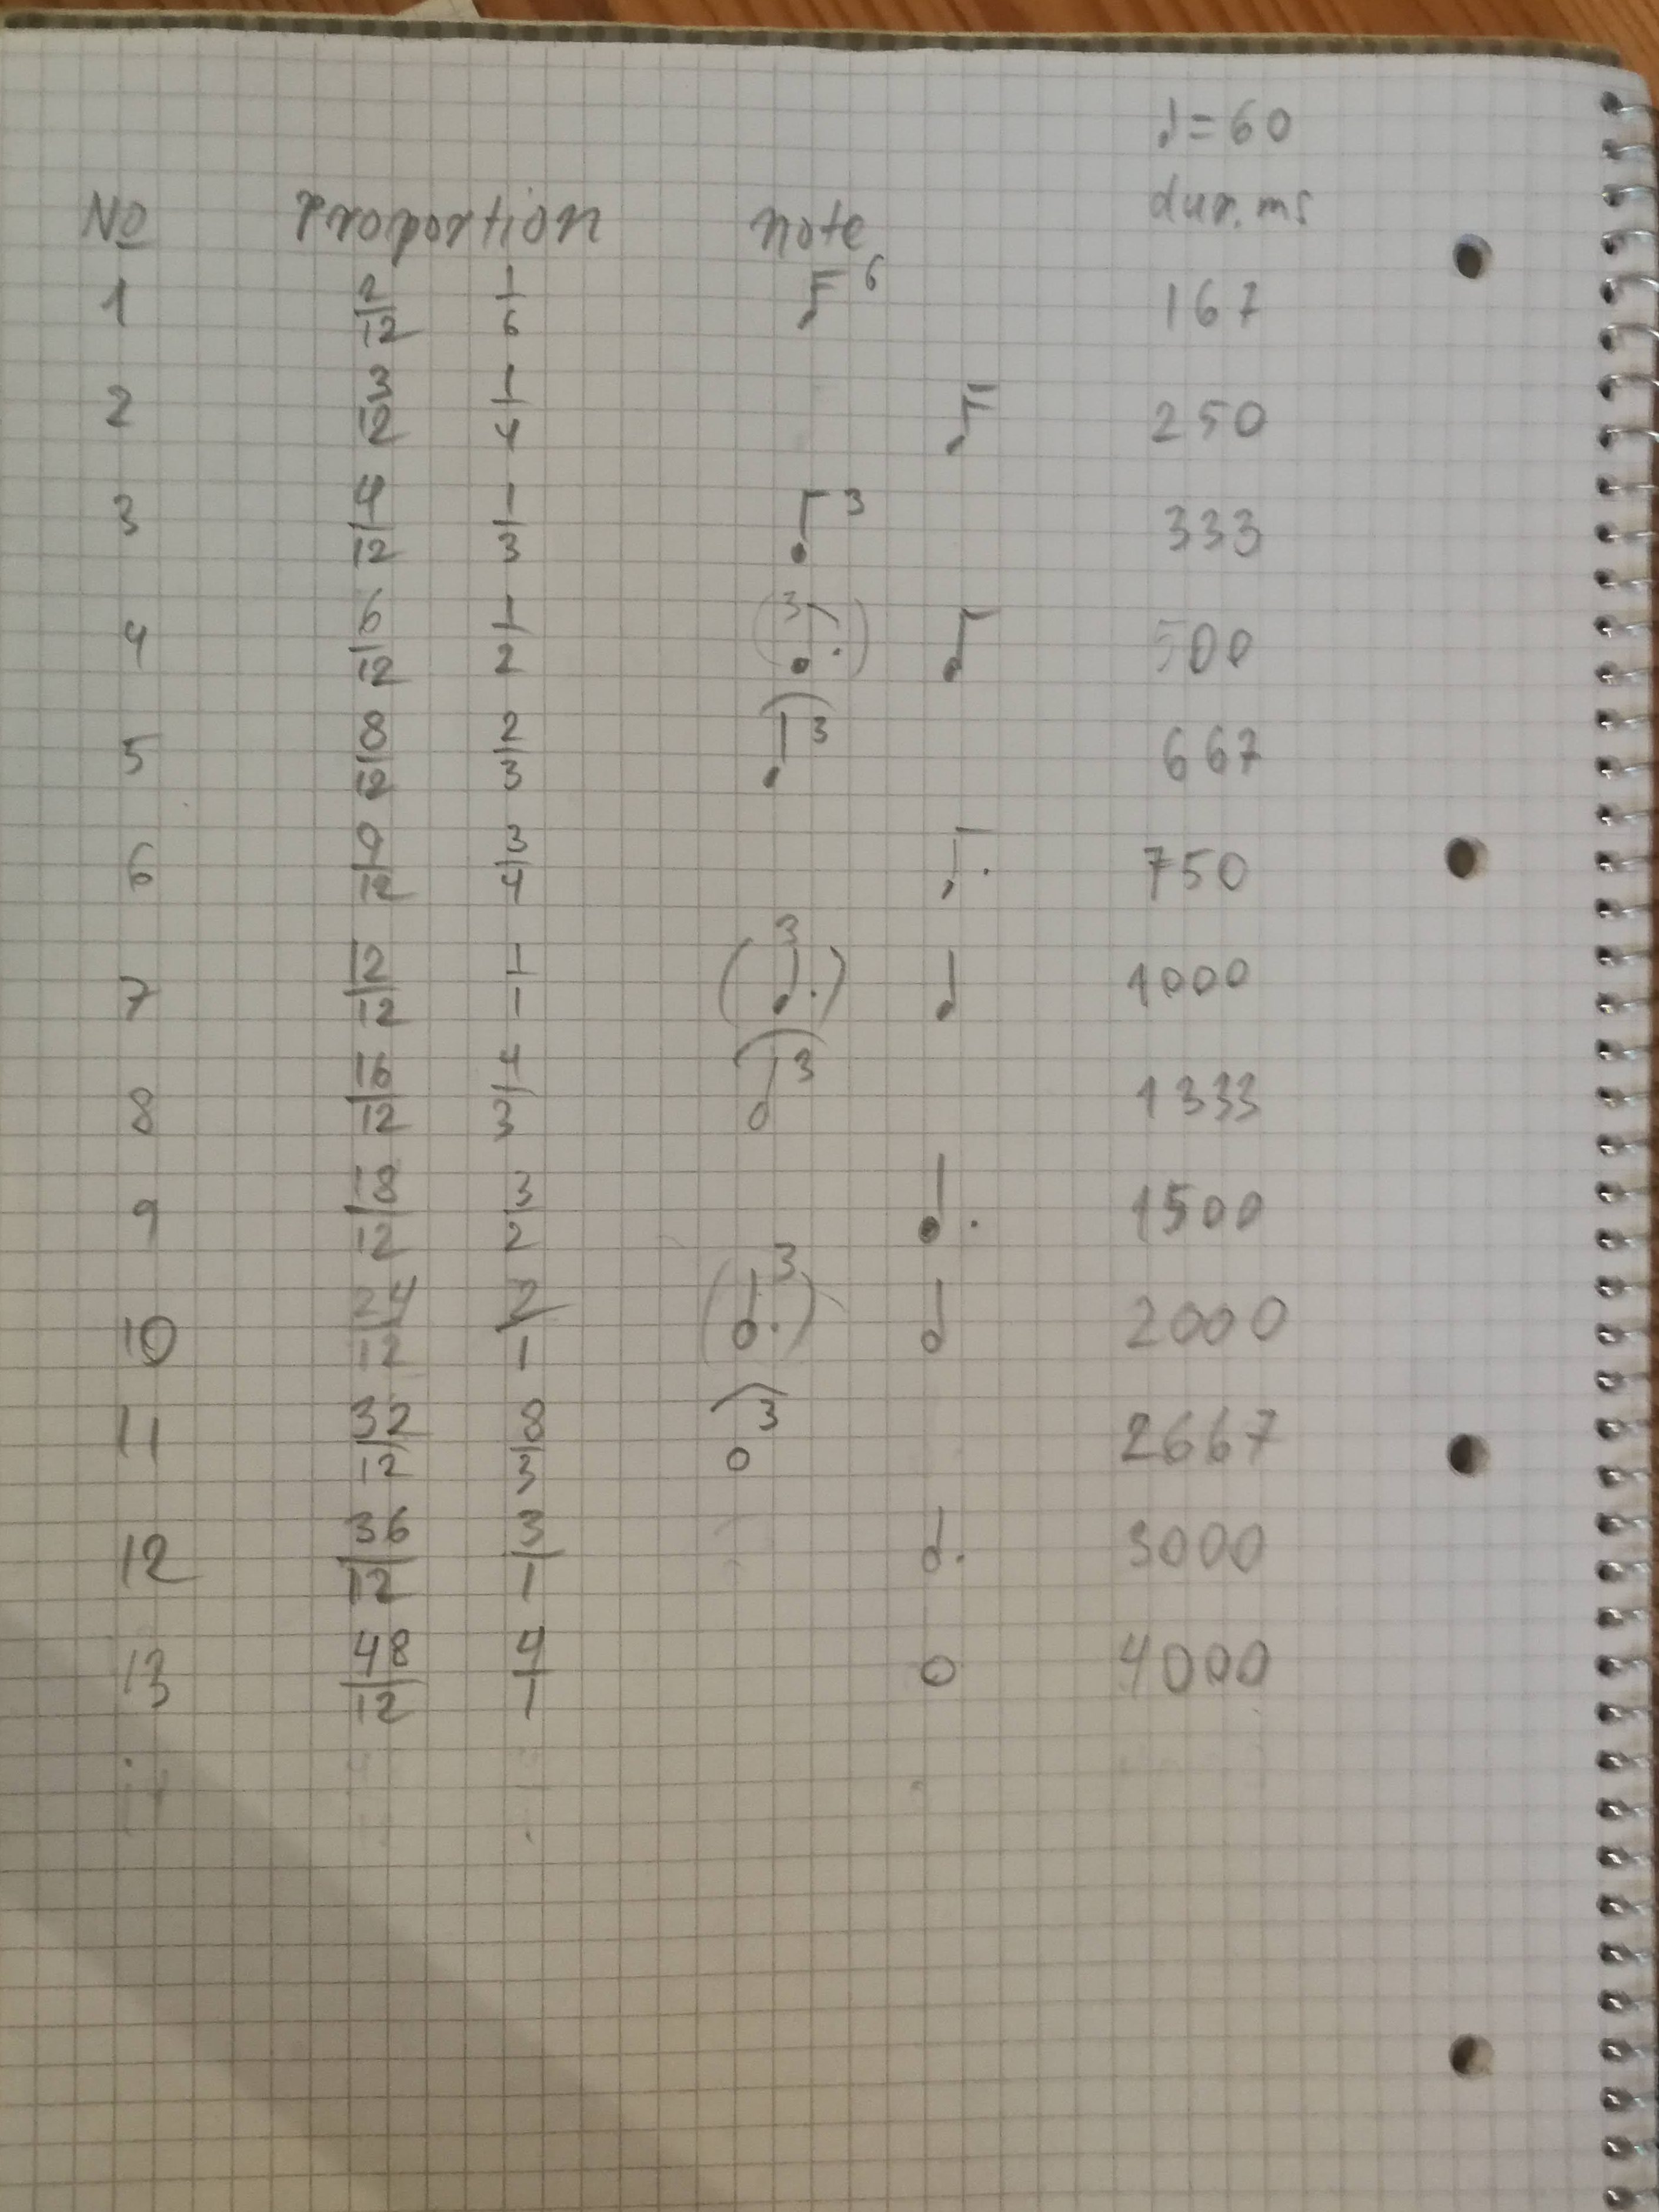 ♩=60
dur. ms
No Proportion note
1 2/12 1/6 6 167
2 3/12 1/4 250
3 4/12 1/3 3 333
4 6/12 1/2 (3 .) 500
5 8/12 2/3 3 667
6 9/12 3/4 . 750
7 12/12 1/1 (3 ♩.) ♩ 1000
8 16/12 4/3 3 1333
9 18/12 3/2 ♩. 1500
10 24/12 2/1 (3 .) 2000
11 32/12 8/3 3 2667
12 36/12 3/1 . 3000
13 48/12 4/1 4000